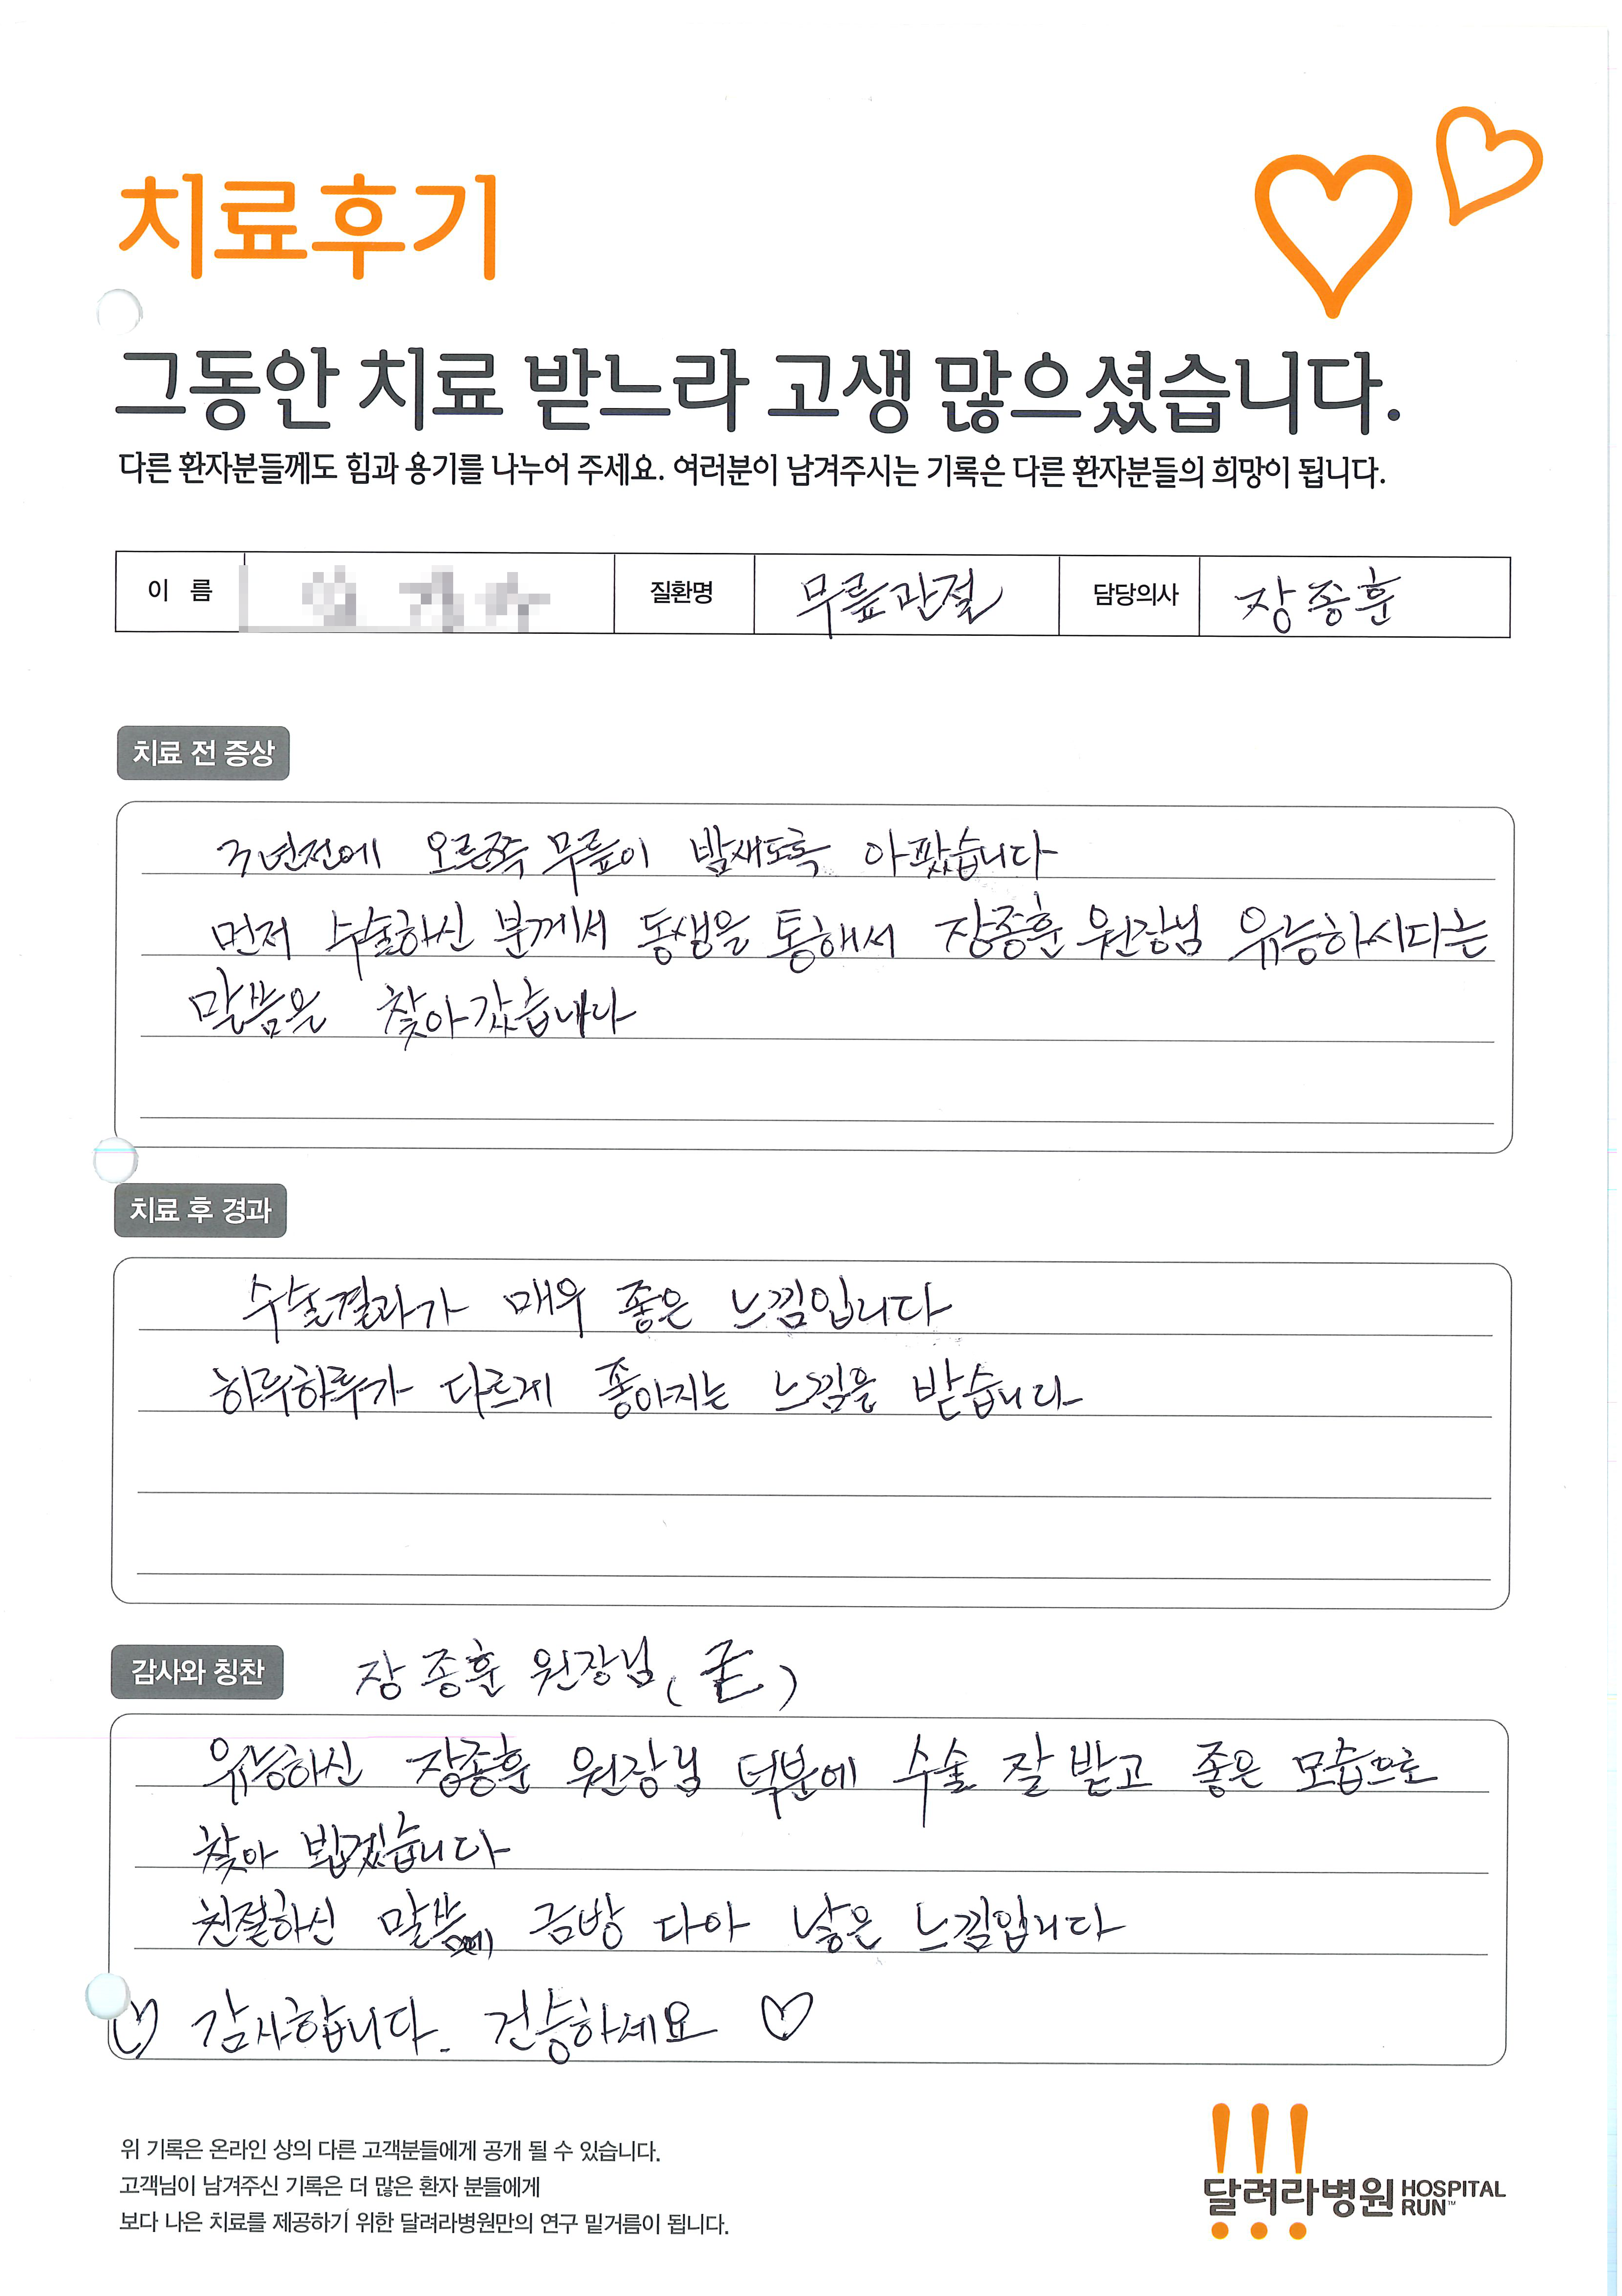 치료후기
그동안 치료 받느라 고생 많으셨습니다.
다른 환자분들께도 힘과 용기를 나누어 주세요. 여러분이 남겨주시는 기록은 다른 환자분들의 희망이 됩니다.
이 름 질환명 무릎관절 담당의사 장종훈
치료 전 증상
3년전에 오른쪽 무릎이 밤새도록 아팠습니다
먼저 수술하신 분께서 동생을 통해서 장종훈 원장님 유능하시다는
말씀을 찾아갔습니다
치료 후 경과
수술결과가 매우 좋은 느낌입니다
하루하루가 다르게 좋아지는 느낌을 받습니다
감사와 칭찬 장종훈 원장님
유능하신 장종훈 원장님 덕분에 수술 잘 받고 좋은 모습으로
찾아 뵙겠습니다
친절하신 말씀에 금방 다아 낳은 느낌입니다
♡ 감사합니다. 건승하세요 ♡
위 기록은 온라인 상의 다른 고객분들에게 공개 될 수 있습니다.
고객님이 남겨주신 기록은 더 많은 환자 분들에게
보다 나은 치료를 제공하기 위한 달려라병원만의 연구 밑거름이 됩니다.
달려라병원 HOSPITAL RUN™